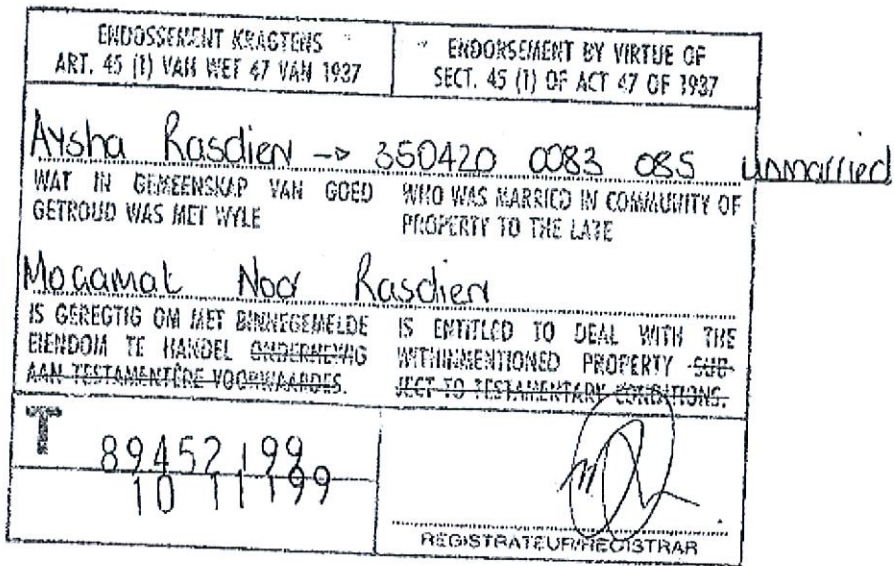 ENDOSSEMENT KRAGTENS
ART. 45 (1) VAN WET 47 VAN 1937
ENDORSEMENT BY VIRTUE OF
SECT. 45 (1) OF ACT 47 OF 1937
Aysha Rasdien -> 350420 0083 085 unmarried
WAT IN GEMEENSKAP VAN GOED
GETROUD WAS MET WYLE
WHO WAS MARRIED IN COMMUNITY OF
PROPERTY TO THE LATE
Mogamat Noor Rasdien
IS GEREGTIG OM MET BINNEGEMELDE
EIENDOM TE HANDEL ONDERHEWIG
AAN TESTAMENTÊRE VOORWAARDES.
IS ENTITLED TO DEAL WITH THE
WITHINMENTIONED PROPERTY SUB-
JECT TO TESTAMENTARY CONDITIONS.
T 89452 199
10 11 199
REGISTRATEUR/REGISTRAR